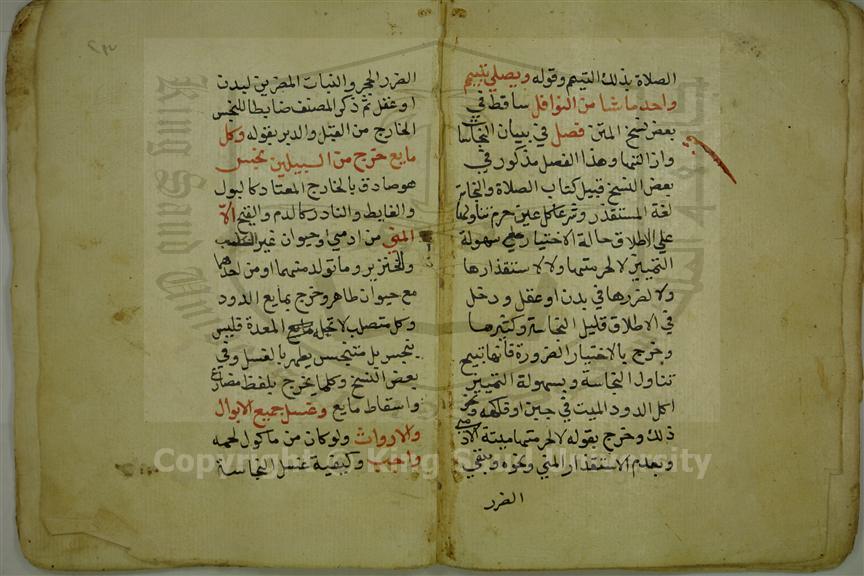 الصلاة بذلك التيمم وقوله ويصلي بتيمم
واحد ما شا من النوافل ساقط في
بعض نسخ المتن فصل في بيان النجاسا
وازالتها وهذا الفصل مذكور في
بعض النسخ قبيل كتاب الصلاة والنجاسة
لغة المستقذر وشرعا كل عين حرم تناولها
علي الاطلاق حالة الاختيار مع سهولة
التمييز لا لحرمتها ولا لاستقذارها
ولا لضررها في بدن او عقل ودخل
في الاطلاق قليل النجاسة وكثيرها
وخرج بالاختيار الضرورة فانها تبيح
تناول النجاسة وبسهولة التمييز
اكل الدود الميت في جبن او فاكهة ونحو
ذلك وخرج بقوله لا لحرمتها ميتة الادمي
وبعدم الاستقذار المني ونحوه وبنفي
الضرر
الضرر الحجر والنبات المضرين لبدن
او عقل ثم ذكر المصنف ضابطا للنجس
الخارج من القبل والدبر بقوله وكل
مايع خرج من السبيلين نجس
هو صادق بالخارج المعتاد كالبول
والغايط والنادر كالدم والقيح الا
المني من ادمي او حيوان غير الكلب
والخنزير وما تولد منهما او من احدهما
مع حيوان طاهر وخرج بمايع الدود
وكل متصلب لا تحيله المعدة فليس
بنجس بل متنجس يطهر بالغسل وفي
بعض النسخ وكلما يخرج بلفظ مضارع
واسقاط مايع وغسل جميع الابوال
والارواث ولو كان من ماكول لحمه
واجب وكيفية غسل النجاسة
King Saud University
Copyright © King Saud University